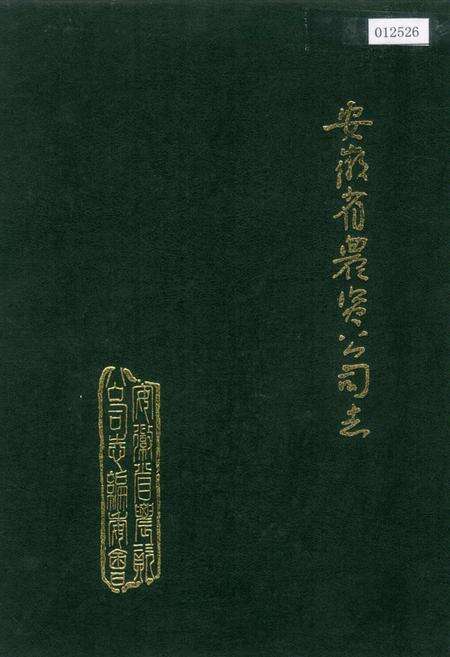 012526
安徽省農资公司志
安徽省農资
公司志編审會